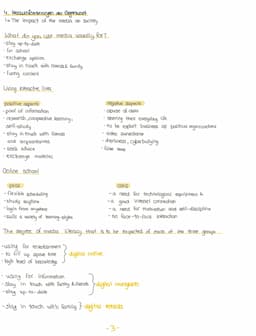 4. Herausforderungen der Gegenwart
↳ The impact of the media on society
What do you use media usually for?
- stay up-to-date
- for school
- exchange opinions
- stay in touch with friends & family
- funny content
Living interactive lives
positive aspects
- pool of information
- research, cooperative learning, self-study
- stay in touch with friends and acquaintances
- seek advice
- exchange
negative aspects
- abuse of data
- sharing their everyday life
- to be
- make
- cyberbullying
- fake news
Online school
pros
- flexible scheduling
- study anytime
- login from anywhere
- suits a variety of learning styles
cons
- a need for technological equipment &
- a good internet connection
- a need for motivation and self-discipline
- no face-to-face interaction
The degree of media literacy that is to be expected of each of the three groups
- using for entertainment
- to fill up spare time
- high level of knowledge
} digital native
- using for information
- stay in touch with family & friends
- stay up-to-date
} digital immigrants
- stay in touch with family } digital
- 3 -